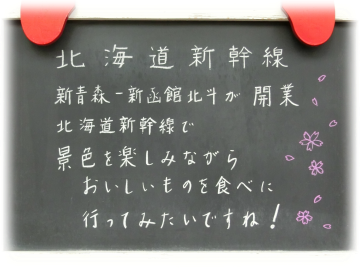 北海道新幹線
新青森－新函館北斗が 開業
北海道新幹線で
景色を楽しみながら
おいしいものを食べに
行ってみたいですね！